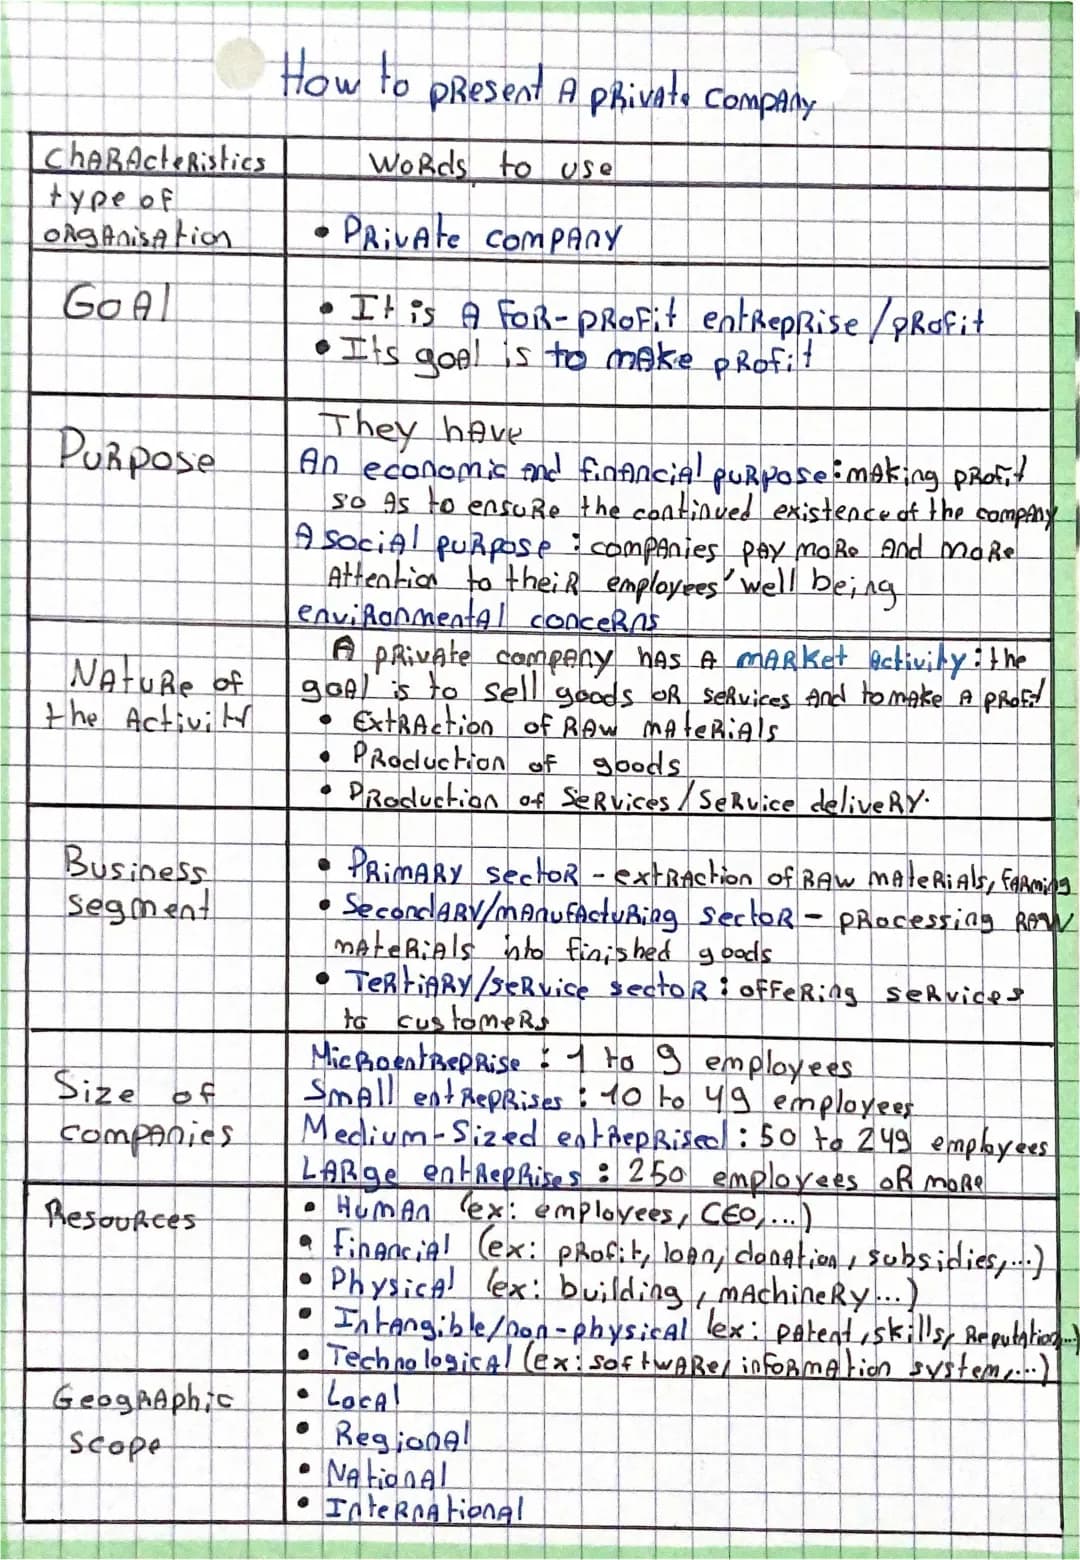 How to present A private company
Characteristics
Words to use
type of
organisation
• Private company
Goal
• It is A for-profit entreprise/profit
• Its goal is to make profit
Purpose
They have
An economic and financial purpose: making profit
so as to ensure the continued existence of the company
A social purpose: companies pay more and more
Attention to their employees' well being
environmental concerns
Nature of
the Activity
A private company has a market activity: the
goal is to sell goods or services and to make a profit
• Extraction of raw materials
• Production of goods
• Production of services/service delivery.
Business
segment
• Primary sector - extraction of raw materials, farming
• Secondary/manufacturing sector - processing raw
materials into finished goods
• Tertiary/service sector: offering services
to customers
Size of
companies
Microentreprise: 1 to 9 employees
Small entreprises: 10 to 49 employees
Medium-Sized entreprised: 50 to 249 employees
Large entreprises: 250 employees or more
Resources
• Human (ex: employees, CEO,...)
• Financial (ex: profit, loan, donation, subsidies,...)
• Physical (ex: building, machinery...)
• Intangible/non-physical (ex: patent, skills, Reputation...)
• Technological (ex: software, information system,...)
Geographic
scope
• Local
• Regional
• National
• International